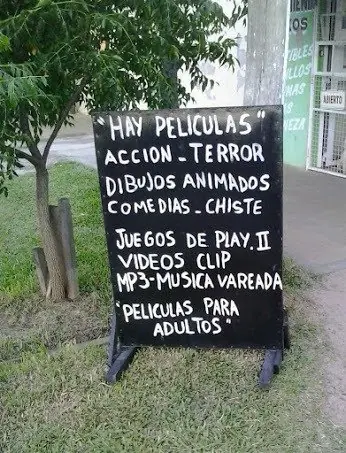 "HAY PELICULAS"
ACCION - TERROR
DIBUJOS ANIMADOS
COMEDIAS - CHISTE
JUEGOS DE PLAY. II
VIDEOS CLIP
MP3-MUSICA VAREADA
"PELICULAS PARA
ADULTOS"
ABIERTO